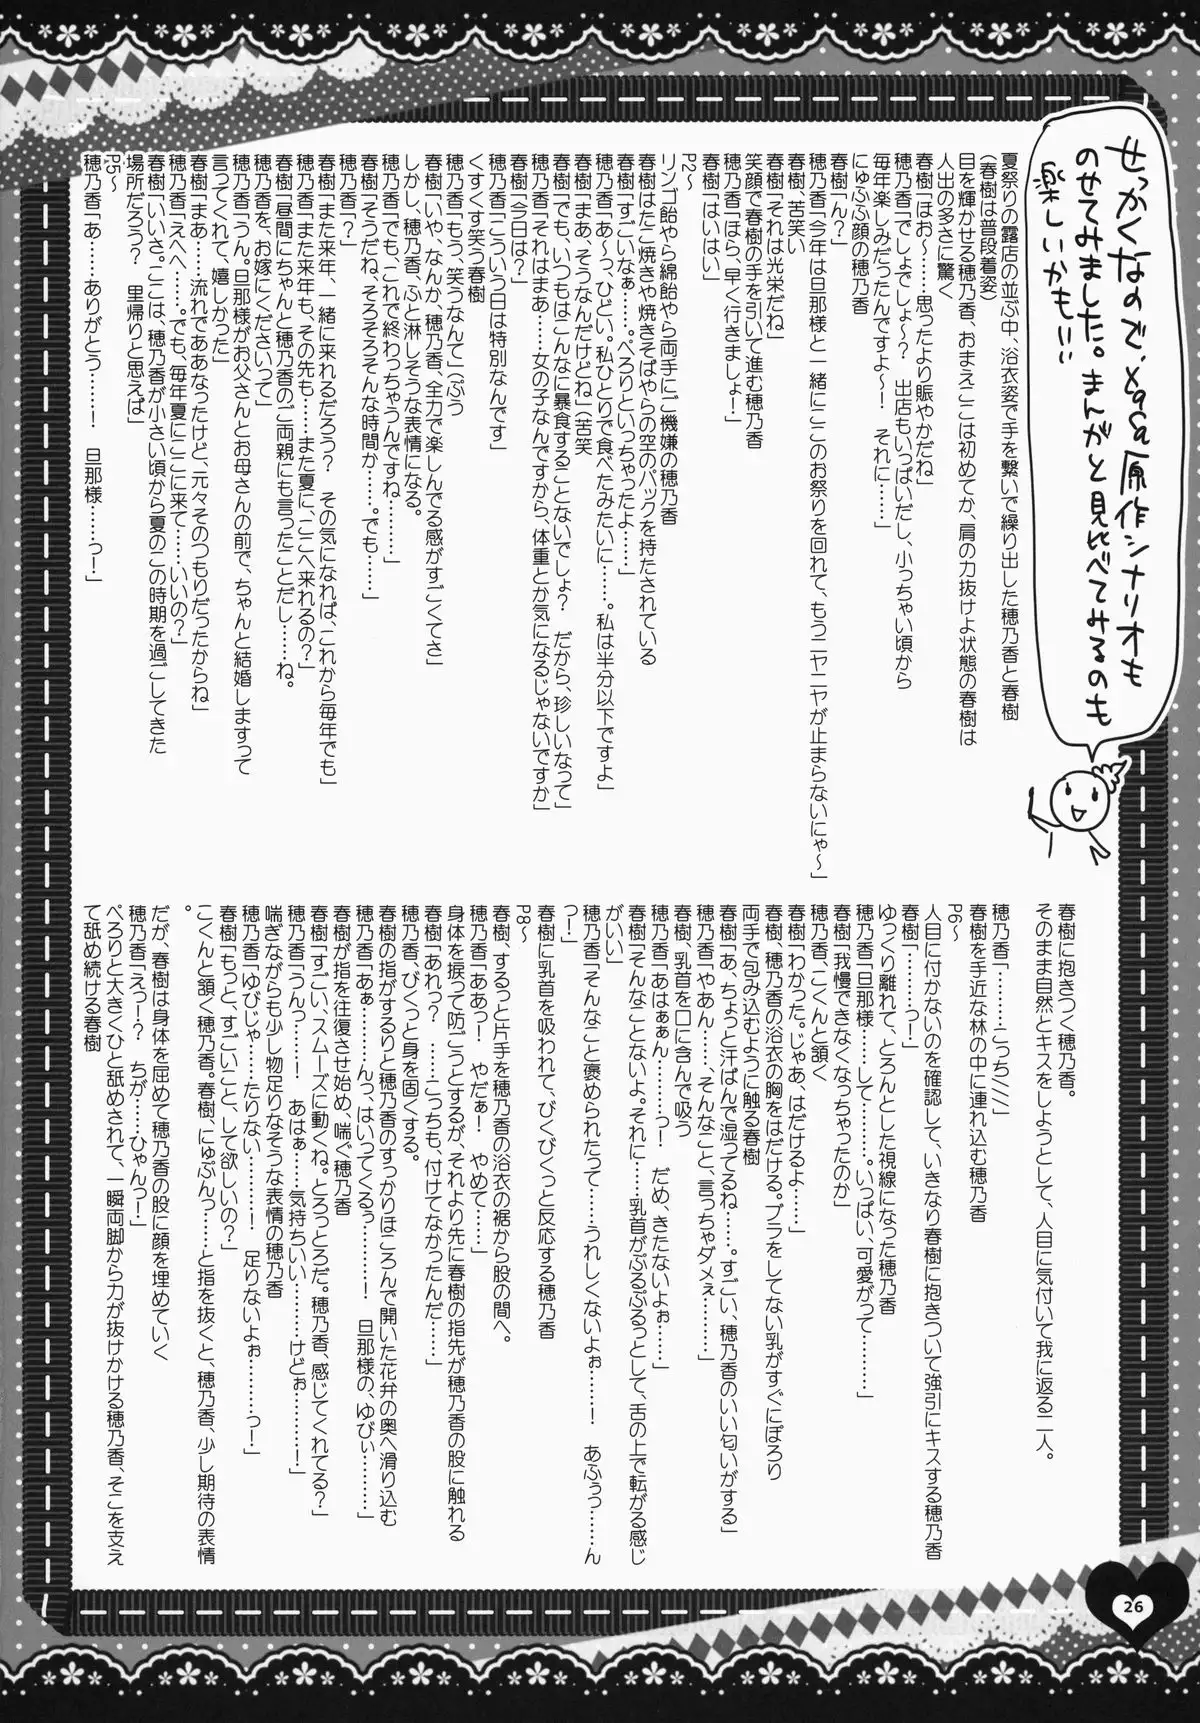 せっかくなので、xasa原作シナリオも
のせてみました。まんがと見比べてみるのも
楽しいかも!!!
夏祭りの露店の並ぶ中、浴衣姿で手を繋いで繰り出した穂乃香と春樹
(春樹は普段着姿)
目を輝かせる穂乃香、おまえここは初めてか、肩の力抜けよ状態の春樹は
人出の多さに驚く
春樹「はお〜……思ったより賑やかだね」
穂乃香「でしょでしょ〜? 出店もいっぱいだし、小っちゃい頃から
毎年楽しみだったんですよ〜! それに……」
にゅふふ顔の穂乃香
春樹「ん?」
穂乃香「今年は旦那様と一緒にここのお祭りを回れて、もうニヤニヤが止まらないにゃ〜」
春樹、苦笑い
春樹「それは光栄だね」
笑顔で春樹の手を引いて進む穂乃香
穂乃香「ほら、早く行きましょ!」
春樹「はいはい」
P2〜
リンゴ飴やら綿飴やら両手にご機嫌の穂乃香
春樹はたこ焼きや焼きそばやらの空のパックを持たされている
春樹「すごいなぁ……。ぺろりといっちゃったよ……」
穂乃香「あ〜っ、ひどい。私ひとりで食べたみたいに……。私は半分以下ですよ」
春樹「まあ、そうなんだけどね」(苦笑
春樹「でも、いつもはこんなに暴食することないでしょ? だから、珍しいなって」
穂乃香「それはまあ……女の子なんですから、体重とか気になるじゃないですか」
春樹「今日は?」
穂乃香「こういう日は特別なんです」
くすくす笑う春樹
穂乃香「もう、笑うなんて」(ぷう
春樹「いや、なんか、穂乃香、全力で楽しんでる感がすごくてさ」
しかし、穂乃香、ふと淋しそうな表情になる。
穂乃香「でも、これで終わっちゃうんですね……」
春樹「そうだね、そろそろそんな時間か……。でも……」
穂乃香「?」
春樹「また来年、一緒に来れるだろう? その気になれば、これから毎年でも」
穂乃香「また来年も、その先も……また夏に、ここへ来れるの?」
春樹「昼間にちゃんと穂乃香のご両親にも言ったことだし……ね。
穂乃香を、お嫁にくださいって」
穂乃香「うん。旦那様がお父さんとお母さんの前で、ちゃんと結婚しますって
言ってくれて、嬉しかった」
春樹「まあ……流れでああなったけど、元々そのつもりだったからね」
穂乃香「えへへ……。でも、毎年夏にここに来て……いいの?」
春樹「いいさ。ここは、穂乃香が小さい頃から夏のこの時期を過ごしてきた
場所だろう? 里帰りと思えば」
P5〜
穂乃香「あ……ありがとう……! 旦那様……っ!」
春樹に抱きつく穂乃香。
そのまま自然とキスをしようとして、人目に気付いて我に返る二人。
穂乃香「………こっち///」
春樹を手近な林の中に連れ込む穂乃香
P6〜
人目に付かないのを確認して、いきなり春樹に抱きついて強引にキスする穂乃香
春樹「………っ!」
ゆっくり離れて、とろんとした視線になった穂乃香
穂乃香「旦那様……して……。いっぱい、可愛がって………」
春樹「我慢できなくなっちゃったのか」
穂乃香、こくんと頷く
春樹「わかった。じゃあ、はだけるよ……」
春樹、穂乃香の浴衣の胸をはだける。ブラをしてない乳がすぐにぽろり
両手で包み込むように触る春樹
春樹「あ、ちょっと汗ばんで湿ってるね……。すごい、穂乃香のいい匂いがする」
穂乃香「やあん……、そんなこと、言っちゃダメぇ………」
春樹、乳首を口に含んで吸う
穂乃香「あはぁぁん………っ! だめ、きたないよぉ……」
春樹「そんなことないよ。それに……乳首がぷるぷるっとして、舌の上で転がる感じ
がいい」
穂乃香「そんなこと褒められたって……うれしくないよぉ……! あふぅっ……ん
っ!」
春樹に乳首を吸われて、びくびくっと反応する穂乃香
P8〜
春樹、するっと片手を穂乃香の浴衣の裾から股の間へ。
穂乃香「ああっ! やだぁ! やめて……」
身体を捩って防ごうとするが、それより先に春樹の指先が穂乃香の股に触れる
春樹「あれっ? ……こっちも、付けてなかったんだ……」
穂乃香、びくっと身を固くする。
春樹の指がするりと穂乃香のすっかりほころんで開いた花弁の奥へ滑り込む
穂乃香「あぁ………んっ、はいってくるっ………! 旦那様の、ゆびぃ………」
春樹が指を往復させ始め、喘ぐ穂乃香
春樹「すごい、スムーズに動くね。とろっとろだ。穂乃香、感じてくれてる?」
穂乃香「うんっ……! あはぁ……気持ちいい………けどぉ………!」
喘ぎながらも少し物足りなそうな表情の穂乃香
穂乃香「ゆびじゃ……たりない………! 足りないよぉ………っ!」
春樹「もっと、すごいこと、して欲しいの?」
こくんと頷く穂乃香。春樹、にゅぷんっ……と指を抜くと、穂乃香、少し期待の表情
。
だが、春樹は身体を屈めて穂乃香の股に顔を埋めていく
穂乃香「えっ!? ちが……ひゃんっ!」
ぺろりと大きくひと舐めされて、一瞬両脚から力が抜けかける穂乃香、そこを支え
て舐め続ける春樹
26